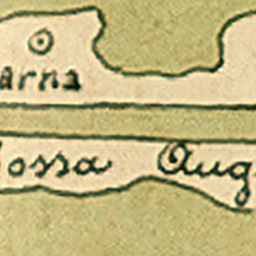 arna
ossa Aug